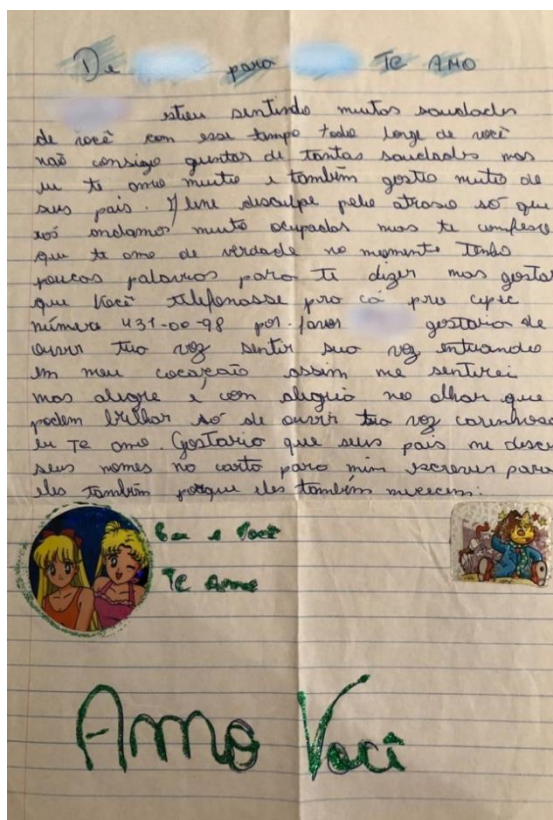 De para TE AMO
estou sentindo muitas saudades
de você con esse tempo todo longe de você
não consigo guentar de tantas saudades mas
eu te amo muito e também gosto muito de
seus pais. disculpe pelo atraso só que
nós andamos muito ocupadas mas te comfeso
que te amo de verdade no momento tenho
poucas palavras para ti dizer mas gostar
que você telefonasse pro cá pra
número 431-00-98 por favor gostaria de
ouvir tua voz sentir sua voz entrando
em meu cocação assim me sentirei
mas alegre e con alegria no olhar que
podem brilhar só de ouvir tua voz carinhosa
eu Te amo. Gostaria que seus pais me desce
seus nomes na carta para mim escrever para
eles também porque eles também merecem.
Eu e Você
Te Amo
Amo Você